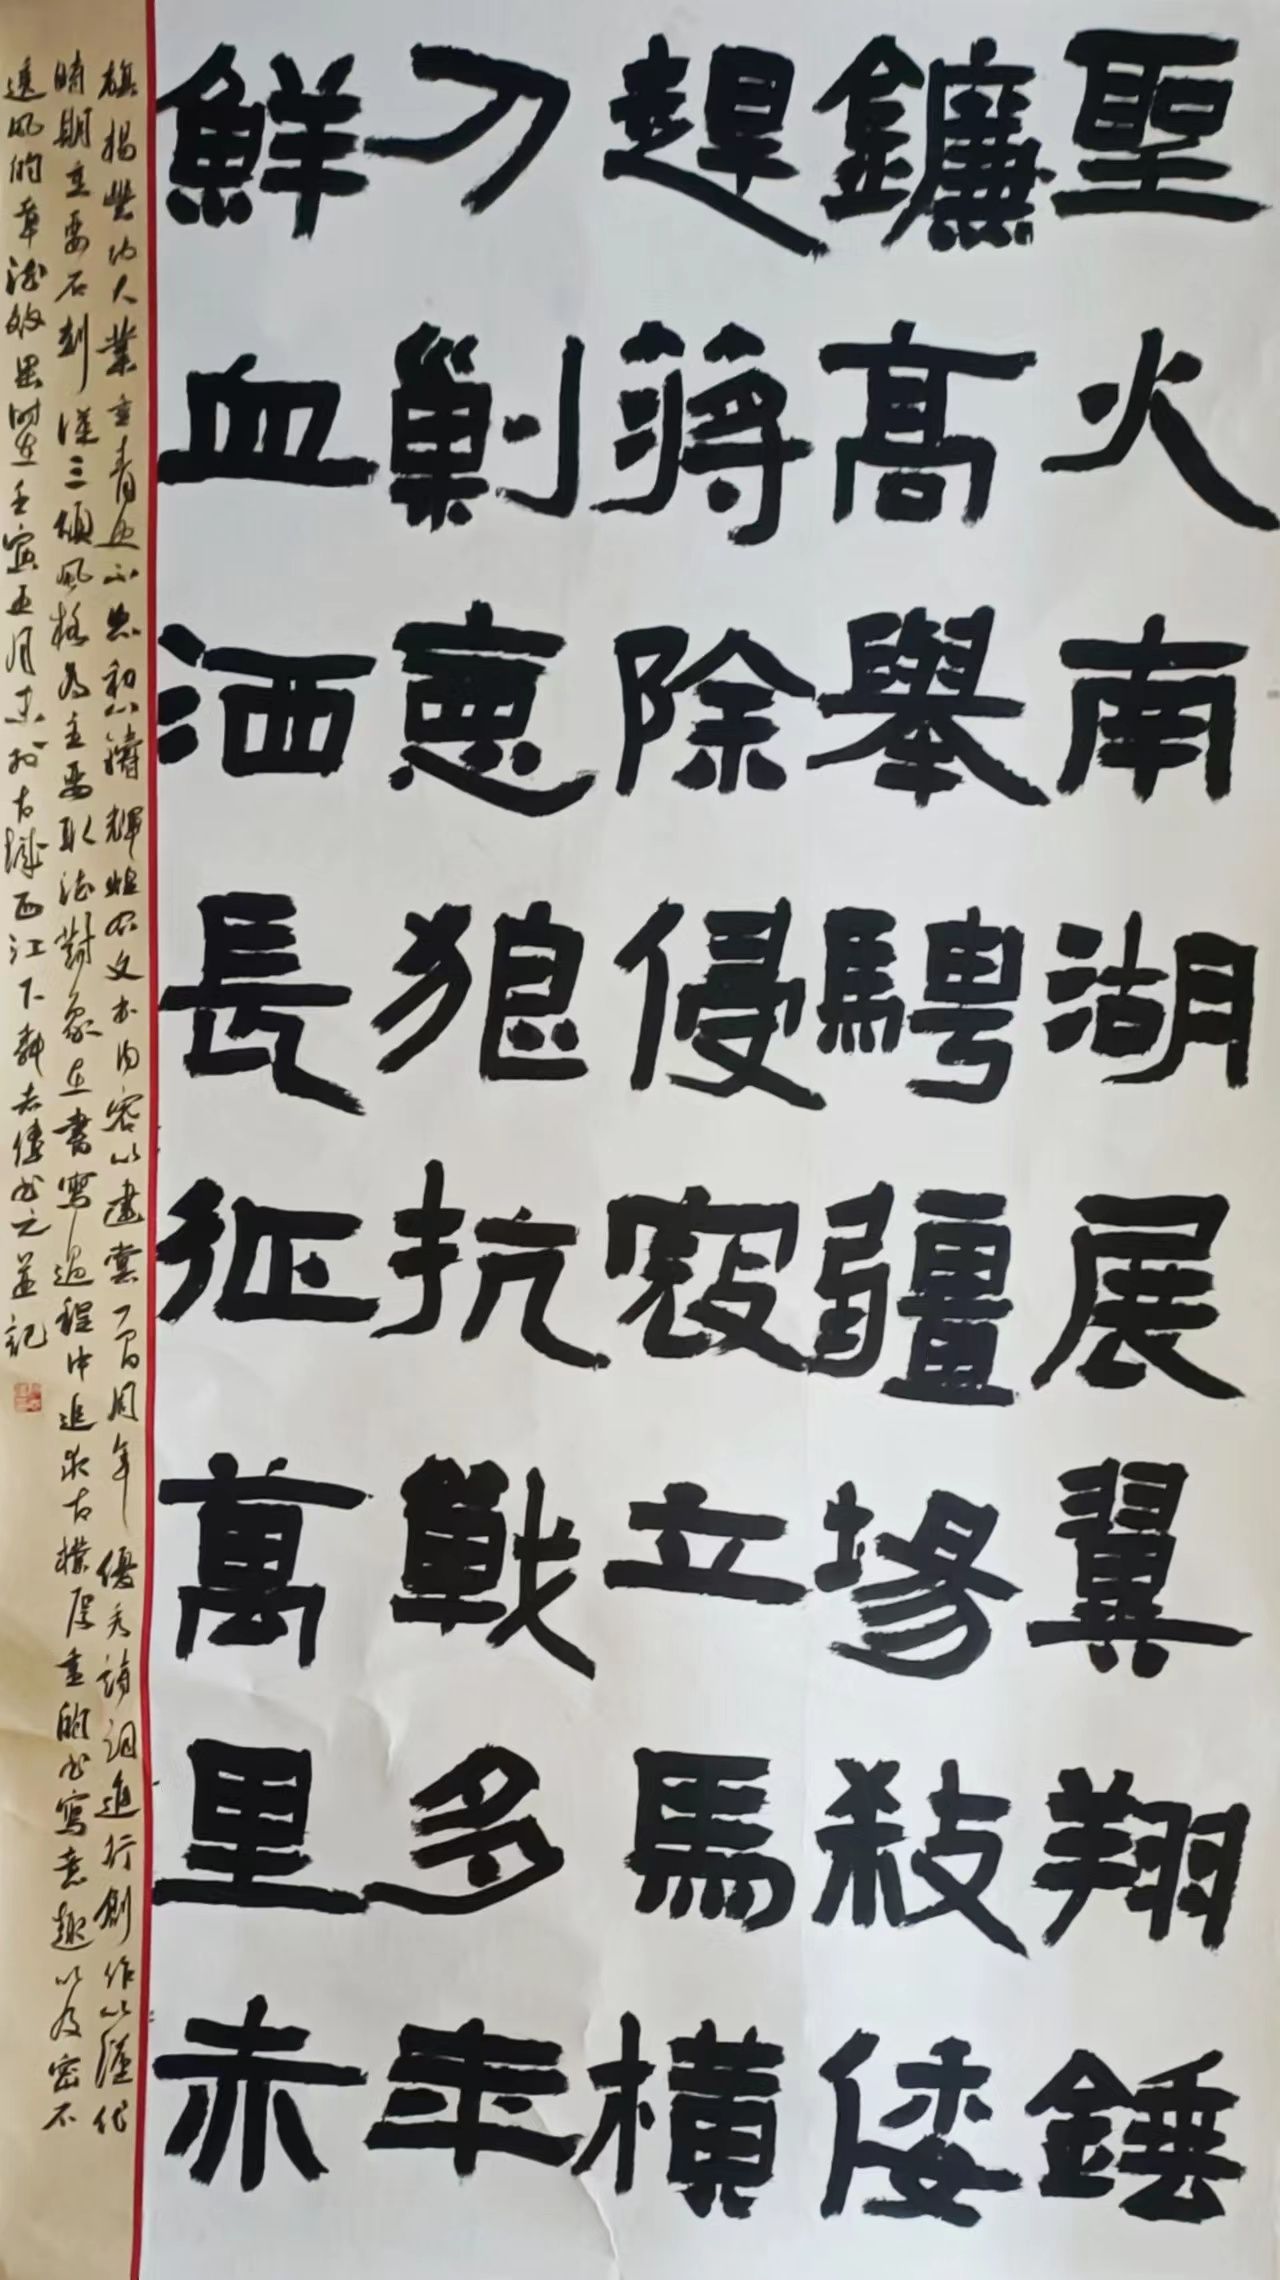 聖火南湖展翼翔錘
鐮高舉騁疆場殺倭
趕蔣除侵寇立馬橫
刀剿惡狼抗戰多年
鮮血洒長征萬里赤
旗揚豐功大業垂青史不忘初心鑄輝煌右文本內容以建黨一百周年優秀詩詞進行創作以漢代
時期重要石刻漢三頌風格為主要取法對象在書寫過程中追求古樸厚重的書寫意趣以及密不
透風的章法效果時在壬寅五月末於古城西江下 志偉書之並記